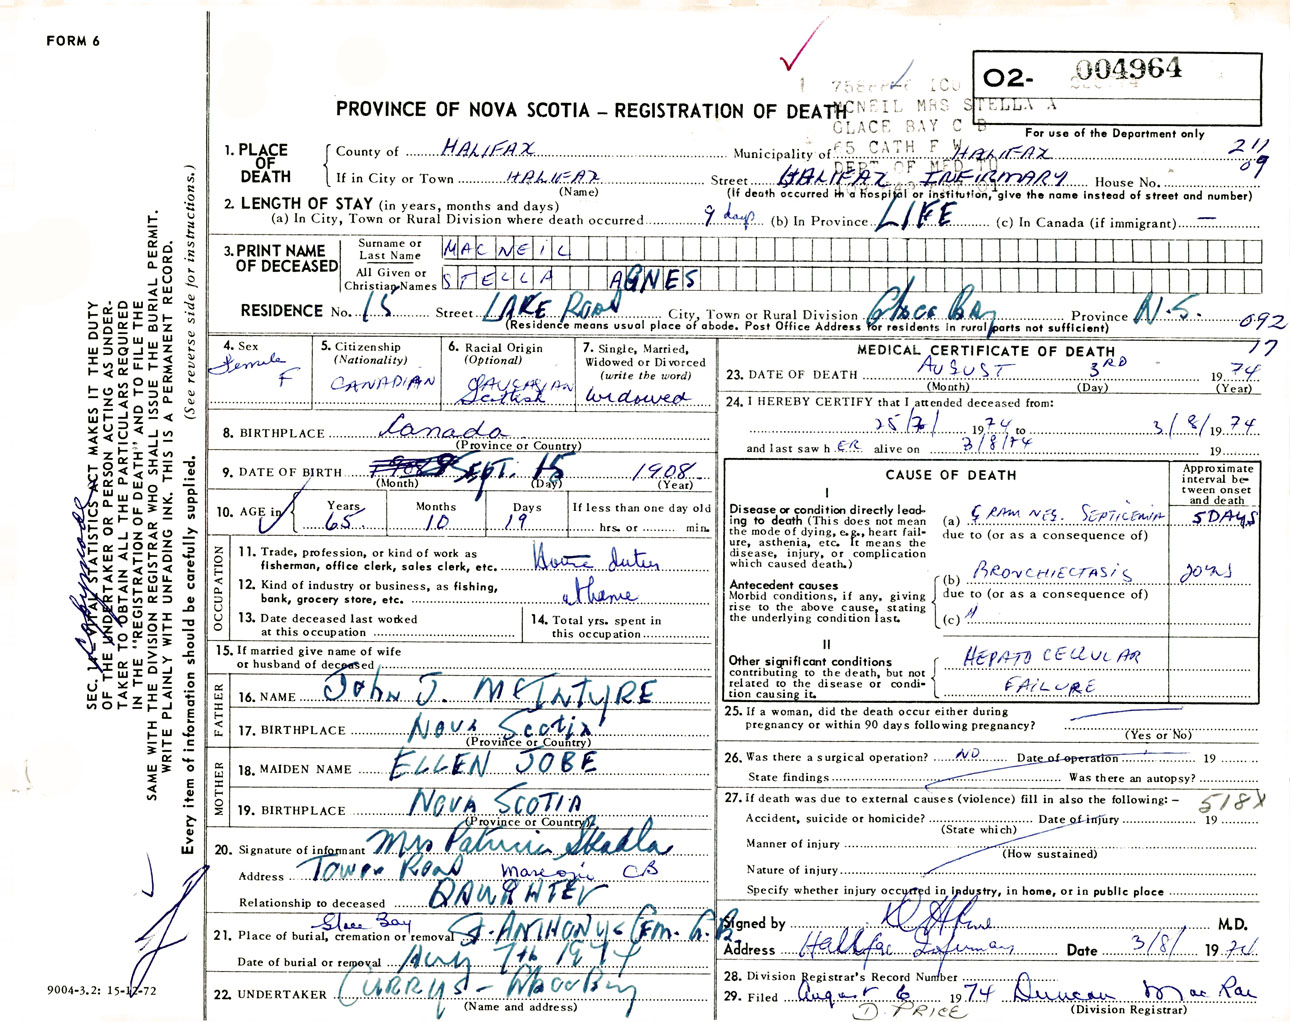 FORM 6
02- 004964
758 ICU
MCNEIL MRS STELLA A
GLACE BAY C B
65 CATH F W
PROVINCE OF NOVA SCOTIA – REGISTRATION OF DEATH
For use of the Department only
211
09
1. PLACE OF DEATH
County of HALIFAX Municipality of HALIFAX
If in City or Town HALIFAX Street HALIFAX INFIRMARY House No.
(Name) (If death occurred in a hospital or institution, give the name instead of street and number)
2. LENGTH OF STAY (in years, months and days)
(a) In City, Town or Rural Division where death occurred 9 days (b) In Province LIFE (c) In Canada (if immigrant) —
3. PRINT NAME OF DECEASED
Surname or Last Name MACNEIL
All Given or Christian Names STELLA AGNES
RESIDENCE No. 15 Street LAKE ROAD City, Town or Rural Division Glace Bay Province N.S.
(Residence means usual place of abode. Post Office Address for residents in rural parts not sufficient)
092
17
4. Sex Female F
5. Citizenship (Nationality) CANADIAN
6. Racial Origin (Optional) CAUCASIAN Scottish
7. Single, Married, Widowed or Divorced (write the word) Widowed
8. BIRTHPLACE Canada
(Province or Country)
9. DATE OF BIRTH SEPT. 15 1908
(Month) (Day) (Year)
10. AGE in Years 65 Months 10 Days 19 If less than one day old hrs. or min.
OCCUPATION
11. Trade, profession, or kind of work as fisherman, office clerk, sales clerk, etc. House duties
12. Kind of industry or business, as fishing, bank, grocery store, etc. at home
13. Date deceased last worked at this occupation
14. Total yrs. spent in this occupation
15. If married give name of wife or husband of deceased
FATHER
16. NAME John J. MCINTYRE
17. BIRTHPLACE Nova Scotia
(Province or Country)
MOTHER
18. MAIDEN NAME ELLEN JOBE
19. BIRTHPLACE NOVA SCOTIA
(Province or Country)
20. Signature of informant Mrs Patricia
Address Tower Road CB
Relationship to deceased DAUGHTER
21. Place of burial, cremation or removal Glace Bay St. ANTHONY'S CEM. G.B.
Date of burial or removal Aug 7th 1974
22. UNDERTAKER CURRYS - Glace Bay
(Name and address)
MEDICAL CERTIFICATE OF DEATH
23. DATE OF DEATH AUGUST 3RD 1974
(Month) (Day) (Year)
24. I HEREBY CERTIFY that I attended deceased from:
25/7/ 1974 to 3/8/ 1974
and last saw h ER alive on 3/8/74 19
CAUSE OF DEATH
Approximate interval between onset and death
I
Disease or condition directly leading to death (This does not mean the mode of dying, e.g., heart failure, asthenia, etc. It means the disease, injury, or complication which caused death.)
(a) GRAM NEG. SEPTICEMIA 5 DAYS
due to (or as a consequence of)
Antecedent causes
Morbid conditions, if any, giving rise to the above cause, stating the underlying condition last.
(b) BRONCHIECTASIS 20 yrs
due to (or as a consequence of)
(c)
II
Other significant conditions contributing to the death, but not related to the disease or condition causing it.
HEPATOCELLULAR
FAILURE
25. If a woman, did the death occur either during pregnancy or within 90 days following pregnancy?
(Yes or No)
26. Was there a surgical operation? NO Date of operation 19
State findings Was there an autopsy?
27. If death was due to external causes (violence) fill in also the following: – 518X
Accident, suicide or homicide? Date of injury 19
(State which)
Manner of injury
(How sustained)
Nature of injury
Specify whether injury occurred in industry, in home, or in public place
Signed by M.D.
Address Halifax Infirmary Date 3/8/ 1974
28. Division Registrar's Record Number
29. Filed August 6 1974 Duncan MacRae
D. PRICE (Division Registrar)
SEC. VITAL STATISTICS ACT MAKES IT THE DUTY
OF THE UNDERTAKER OR PERSON ACTING AS UNDER-
TAKER TO OBTAIN ALL THE PARTICULARS REQUIRED
IN THE "REGISTRATION OF DEATH" AND TO FILE THE
SAME WITH THE DIVISION REGISTRAR WHO SHALL ISSUE THE BURIAL PERMIT.
WRITE PLAINLY WITH UNFADING INK. THIS IS A PERMANENT RECORD.
Every item of information should be carefully supplied. (See reverse side for instructions.)
9004-3.2: 15-12-72